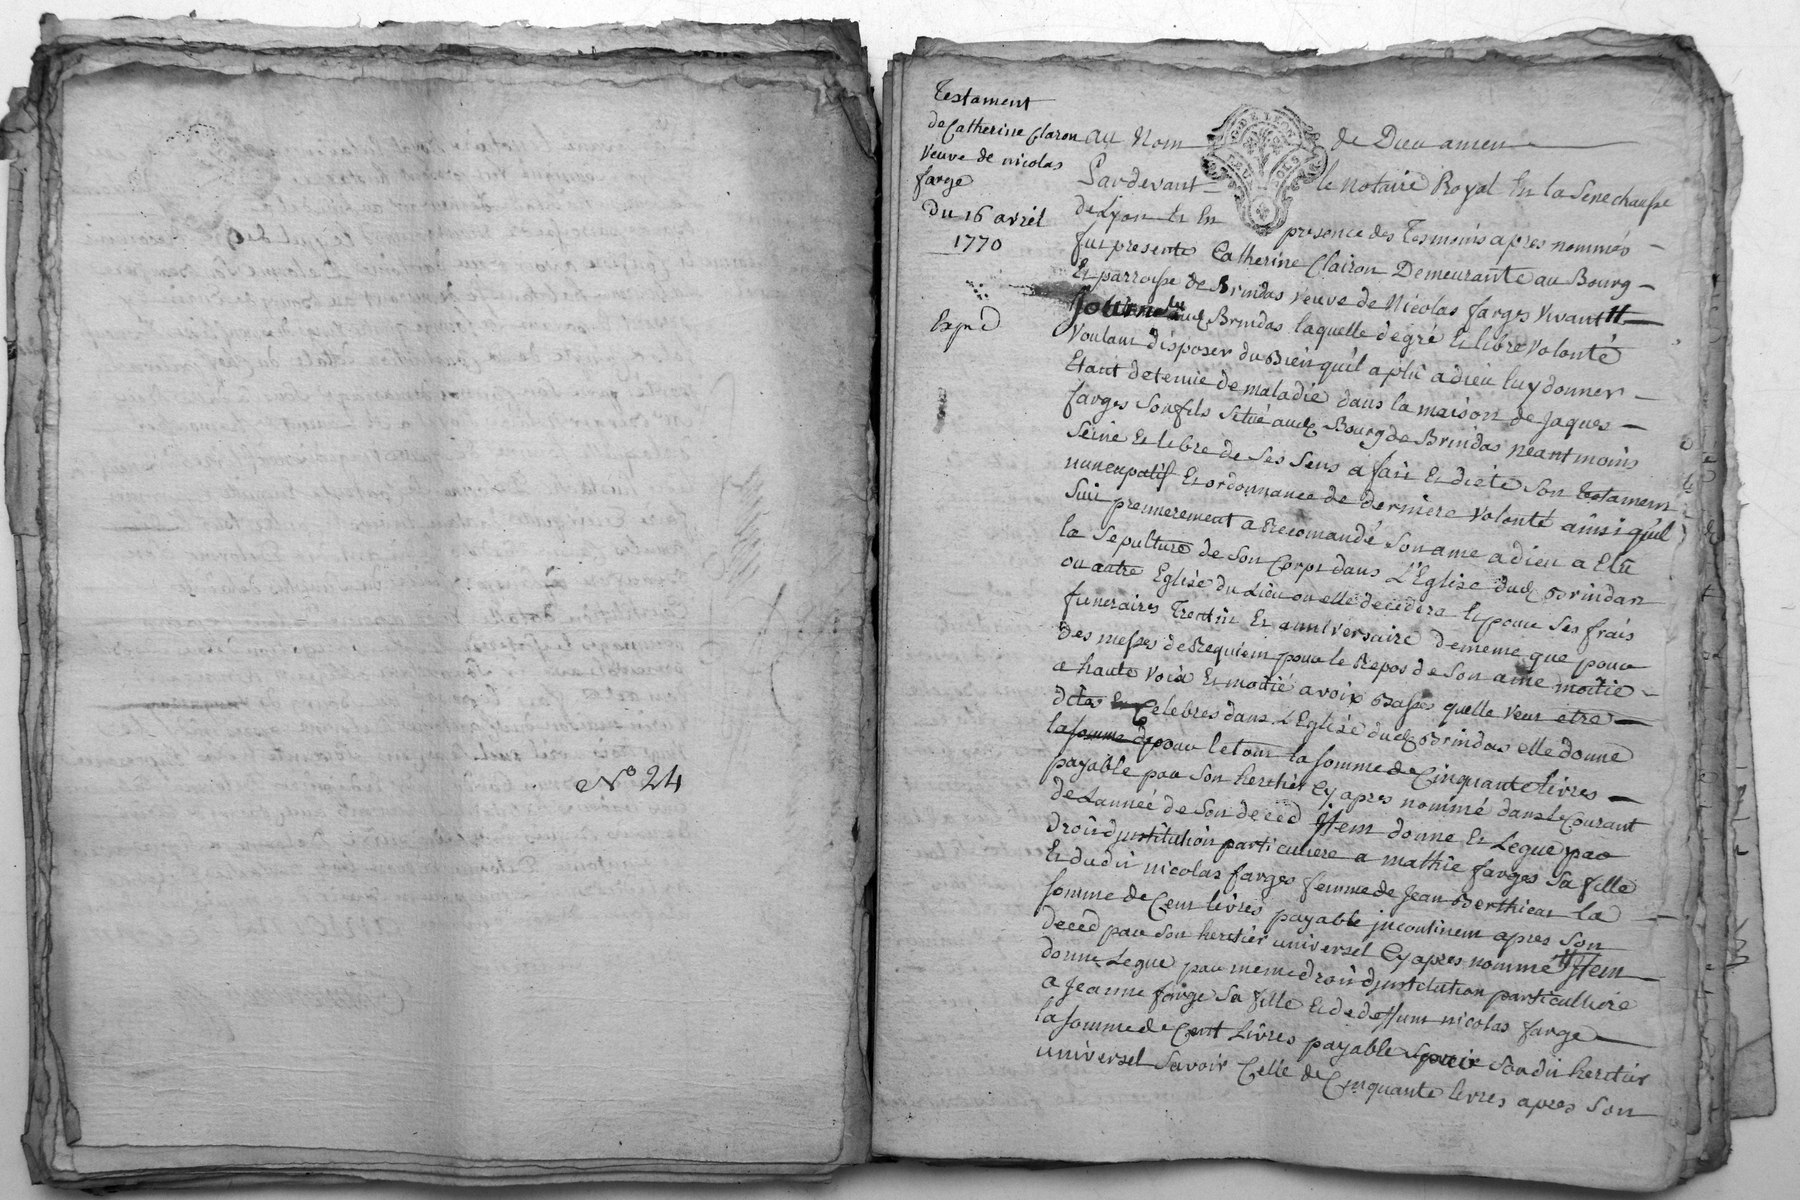 N° 24
Testament
de Catherine Claron
Veuve de nicolas
farge
Du 16 avril
1770
Exp d
G. DE LION
au Nom de Dieu amen
Pardevant le notaire Royal En la Senechaussé
de Lyon Et En presence des Tesmoins apres nommés
fut presente Catherine Clairon Demeurante au Bourg
Et parroisse de Brindas veuve de Nicolas farges vivant
Journalier Brindas laquelle de gré Et libre volonté
Voulant disposer du Bien qu'il a plû a dieu luy donner
Etant detenue de maladie dans la maison de Jaques
farges son fils Situé aud Bourg de Brindas neantmoins
Seine Et libre de Ses Sens a fait Et dicté Son testament
nuncupatif Et ordonnance de derniere volonté ainsi quil
Suit premierement a Recomandé Son ame a dieu a Elû
la Sepulture de Son Corps dans L'Eglise dud Brindas
ou autre Eglise du Lieu ou elle decedera Et pour Ses frais
funeraires Trentin Et anniversaire dememe que pour
des messes de Requiem pour le Repos de Son ame moitie
a haute Voix Et moitié a voix Basses quelle veut etre
dites Celebres dans L'Eglise dud Brindas elle donne
la somme de pour le tout la somme de Cinquante livres
payable par Son heretier Cy apres nommé dans le Courant
de Lannée de Son deced Jtem donne Et Legue par
droit djnstitution particuliere a mathie farges Sa fille
Et dudit nicolas farges femme de Jean Berthieat la
Somme de Cent livres payable jncontinent apres Son
deced par Son heretier universel Cy apres nommé Jtem
donne Legue par meme droit djnstitution particulliere
a Jeanne farge Sa fille Et de deffunt nicolas farge
la Somme de Cent Livres payable Sondit heretier
universel Savoir Celle de Cinquante livres apres Son